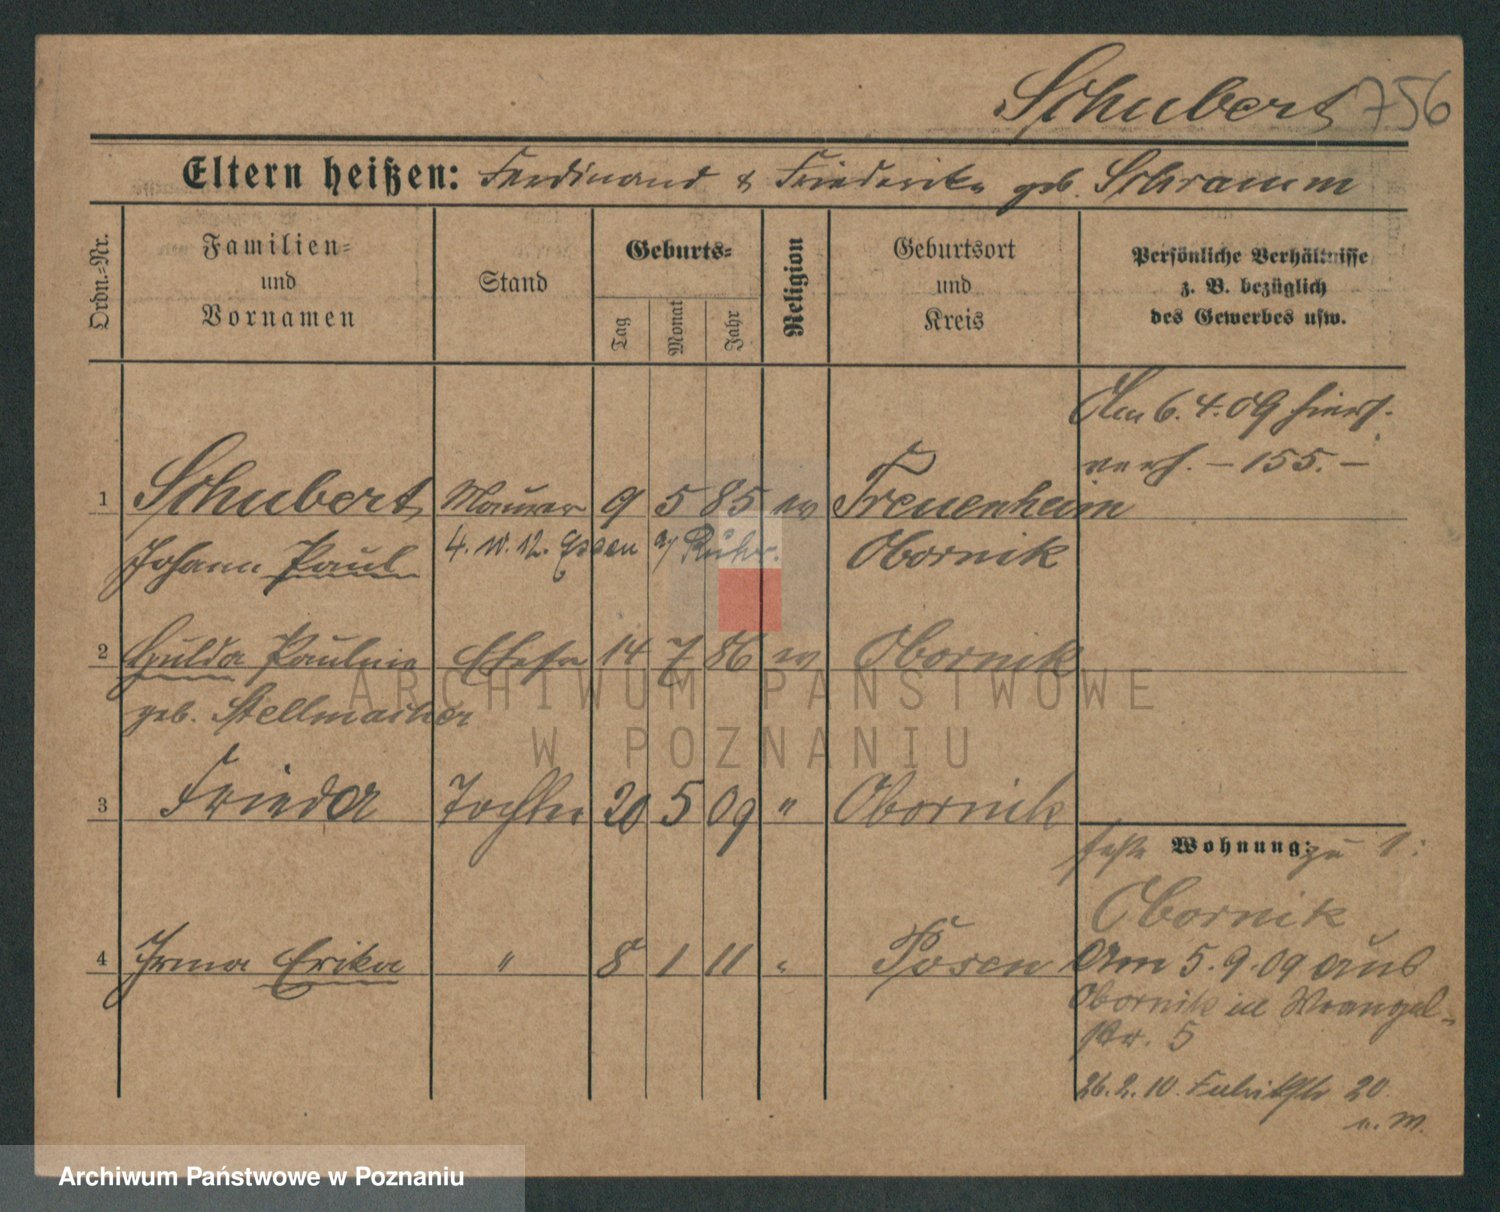 Schubert 756
Eltern heißen: Ferdinand & Friederike geb. Schramm
Ordn.-Nr.
Familien-
und
Vornamen
Stand
Geburts-
Tag
Monat
Jahr
Religion
Geburtsort
und
Kreis
Persönliche Verhältnisse
z. B. bezüglich
des Gewerbes usw.
Am 6.4.09 hier
verh. – 155. –
1 Schubert Maurer 9 5 85 ev Treuenheim
Johann Paul 4. 11. 12. Essen a/ Ruhr. Obornik
2 Hulda Pauline Ehefr 14 7 86 ev Obornik
geb. Stellmacher
3 Frieda Tochter 20 5 09 " Obornik
Wohnung: zu 1:
Obornik
4 Irma Erika " 8 1 11 " Posen
Am 5.9.09 aus
Obornik in Wrangel-
str. 5
26.2.10. Fabrikstr 20
n. W.
ARCHIWUM PAŃSTWOWE
W POZNANIU
Archiwum Państwowe w Poznaniu